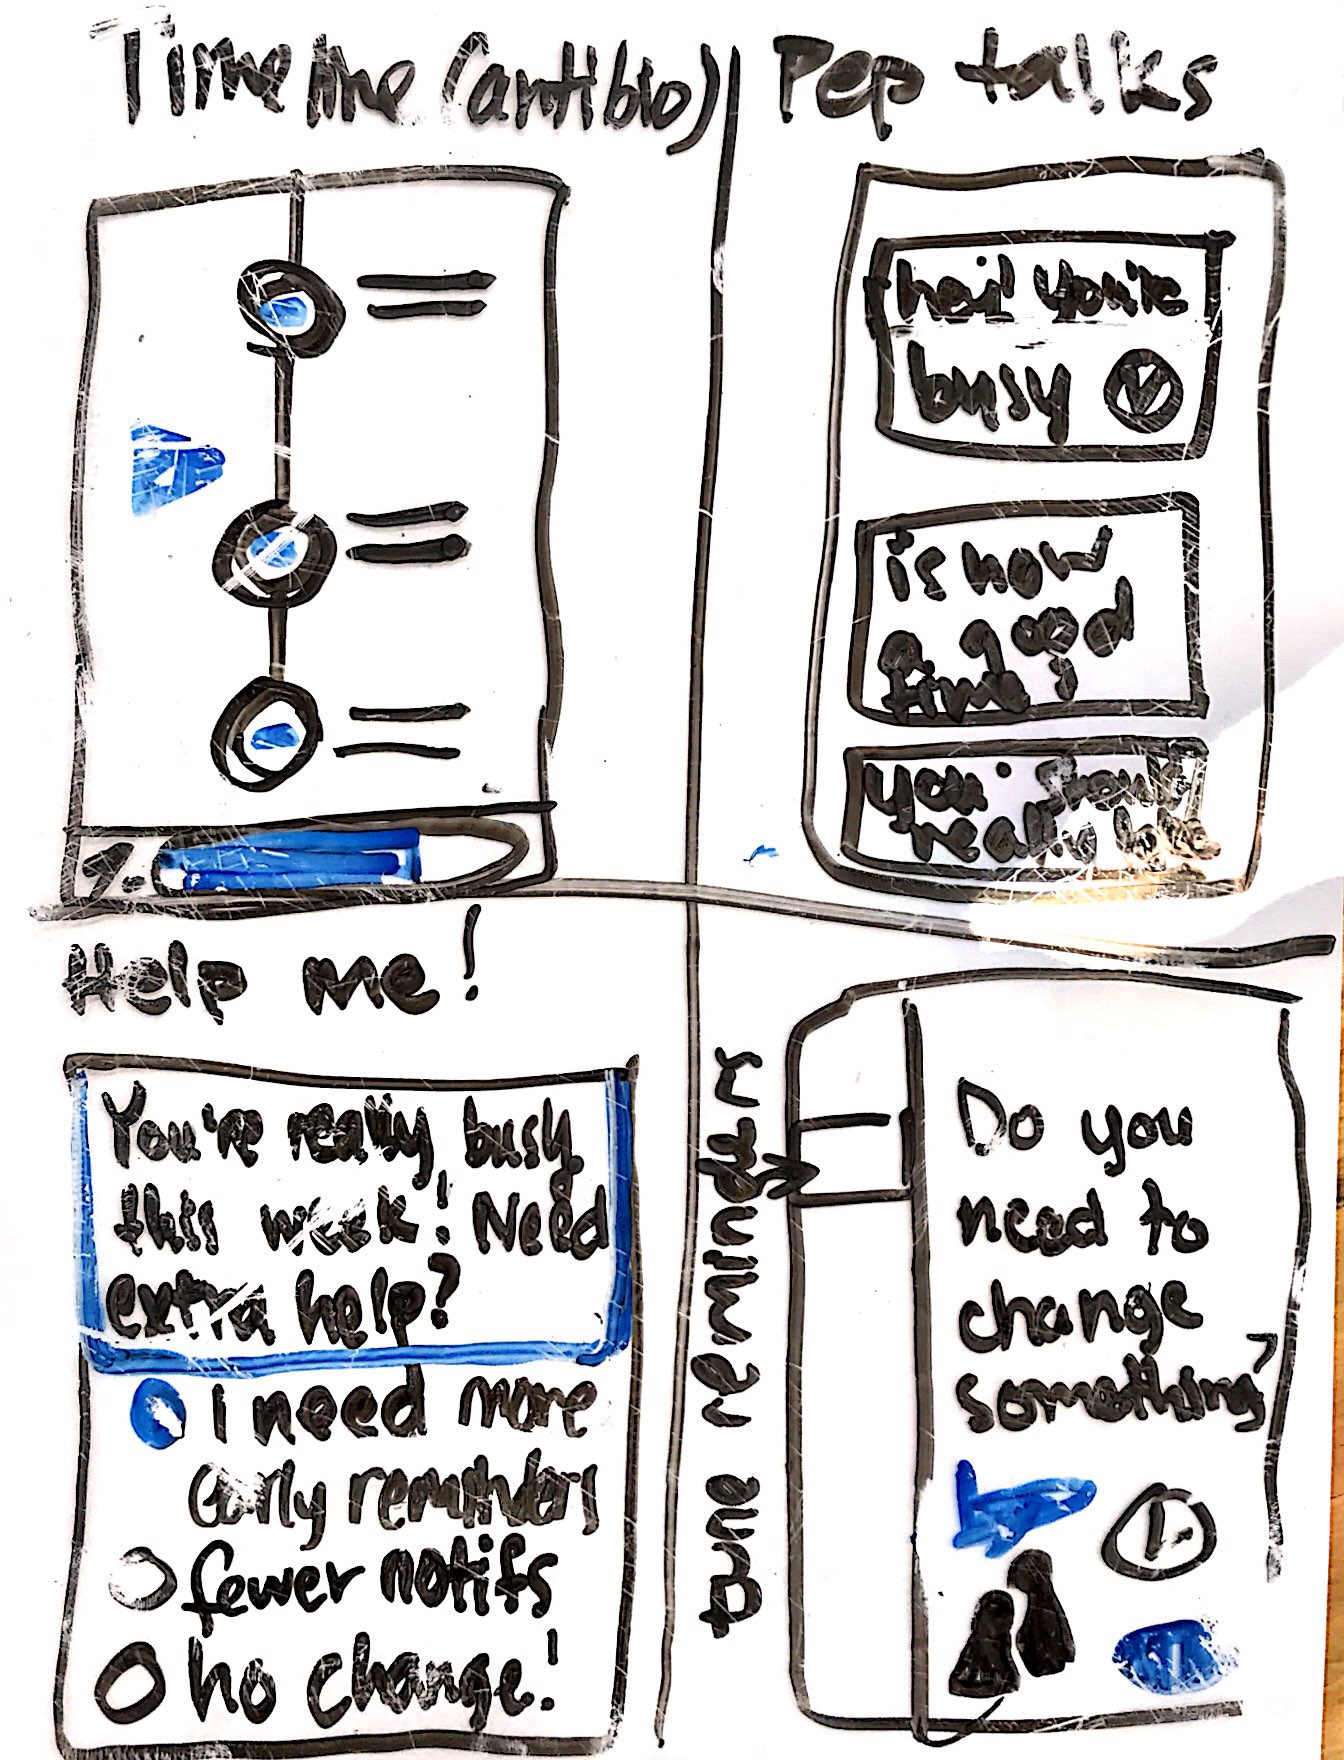 Timeline (antibio)
Pep talks
hey! you're
busy
is now
a good
time?
you
really
Help me!
You're really busy
this week! Need
extra help?
I need more
early reminders
fewer notifs
no change!
tune reminders
Do you
need to
change
something?